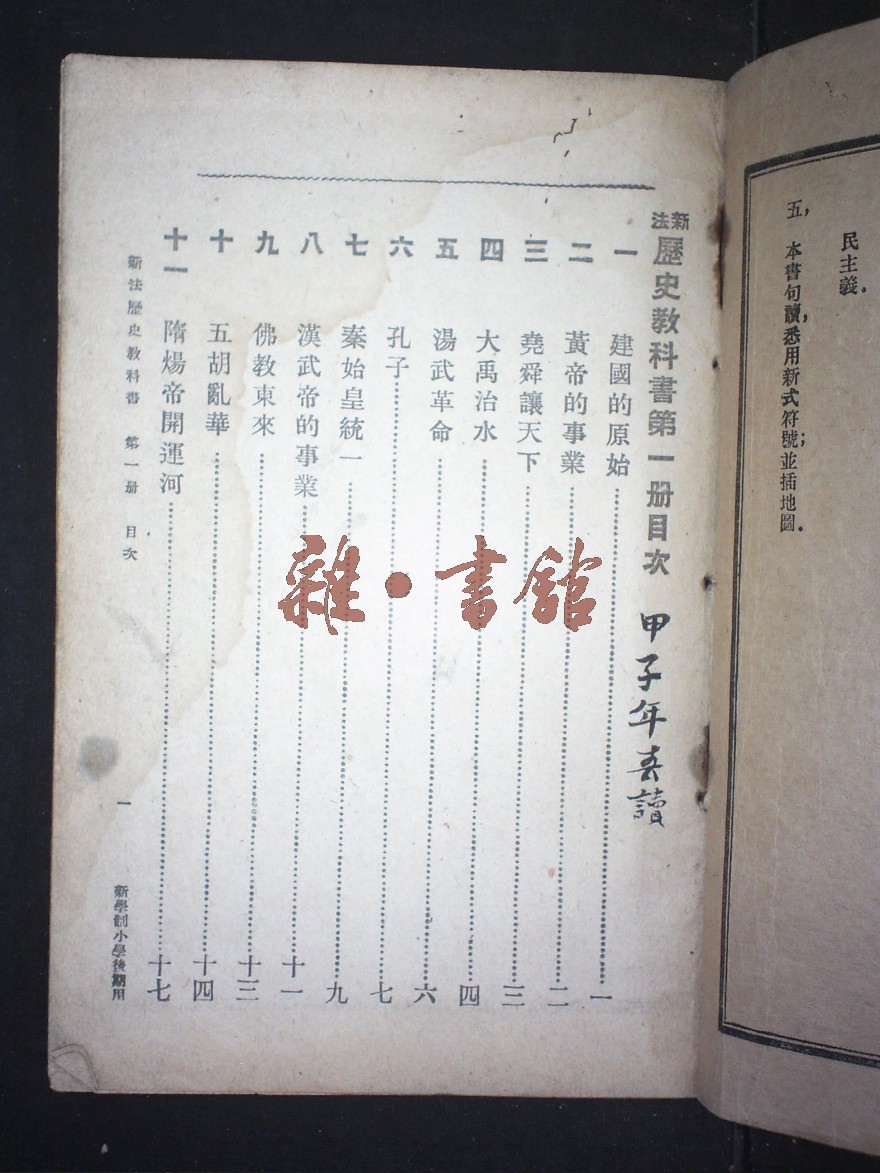 民主義.
五, 本書句讀,悉用新式符號;並插地圖.
新法歷史教科書第一册目次
甲子年春讀
一 建國的原始 一
二 黃帝的事業 二
三 堯舜讓天下 三
四 大禹治水 四
五 湯武革命 六
六 孔子 七
七 秦始皇統一 九
八 漢武帝的事業 十一
九 佛教東來 十三
十 五胡亂華 十四
十一 隋煬帝開運河 十七
新法歷史教科書 第一册 目次 一
新學制小學後期用
雜·書館